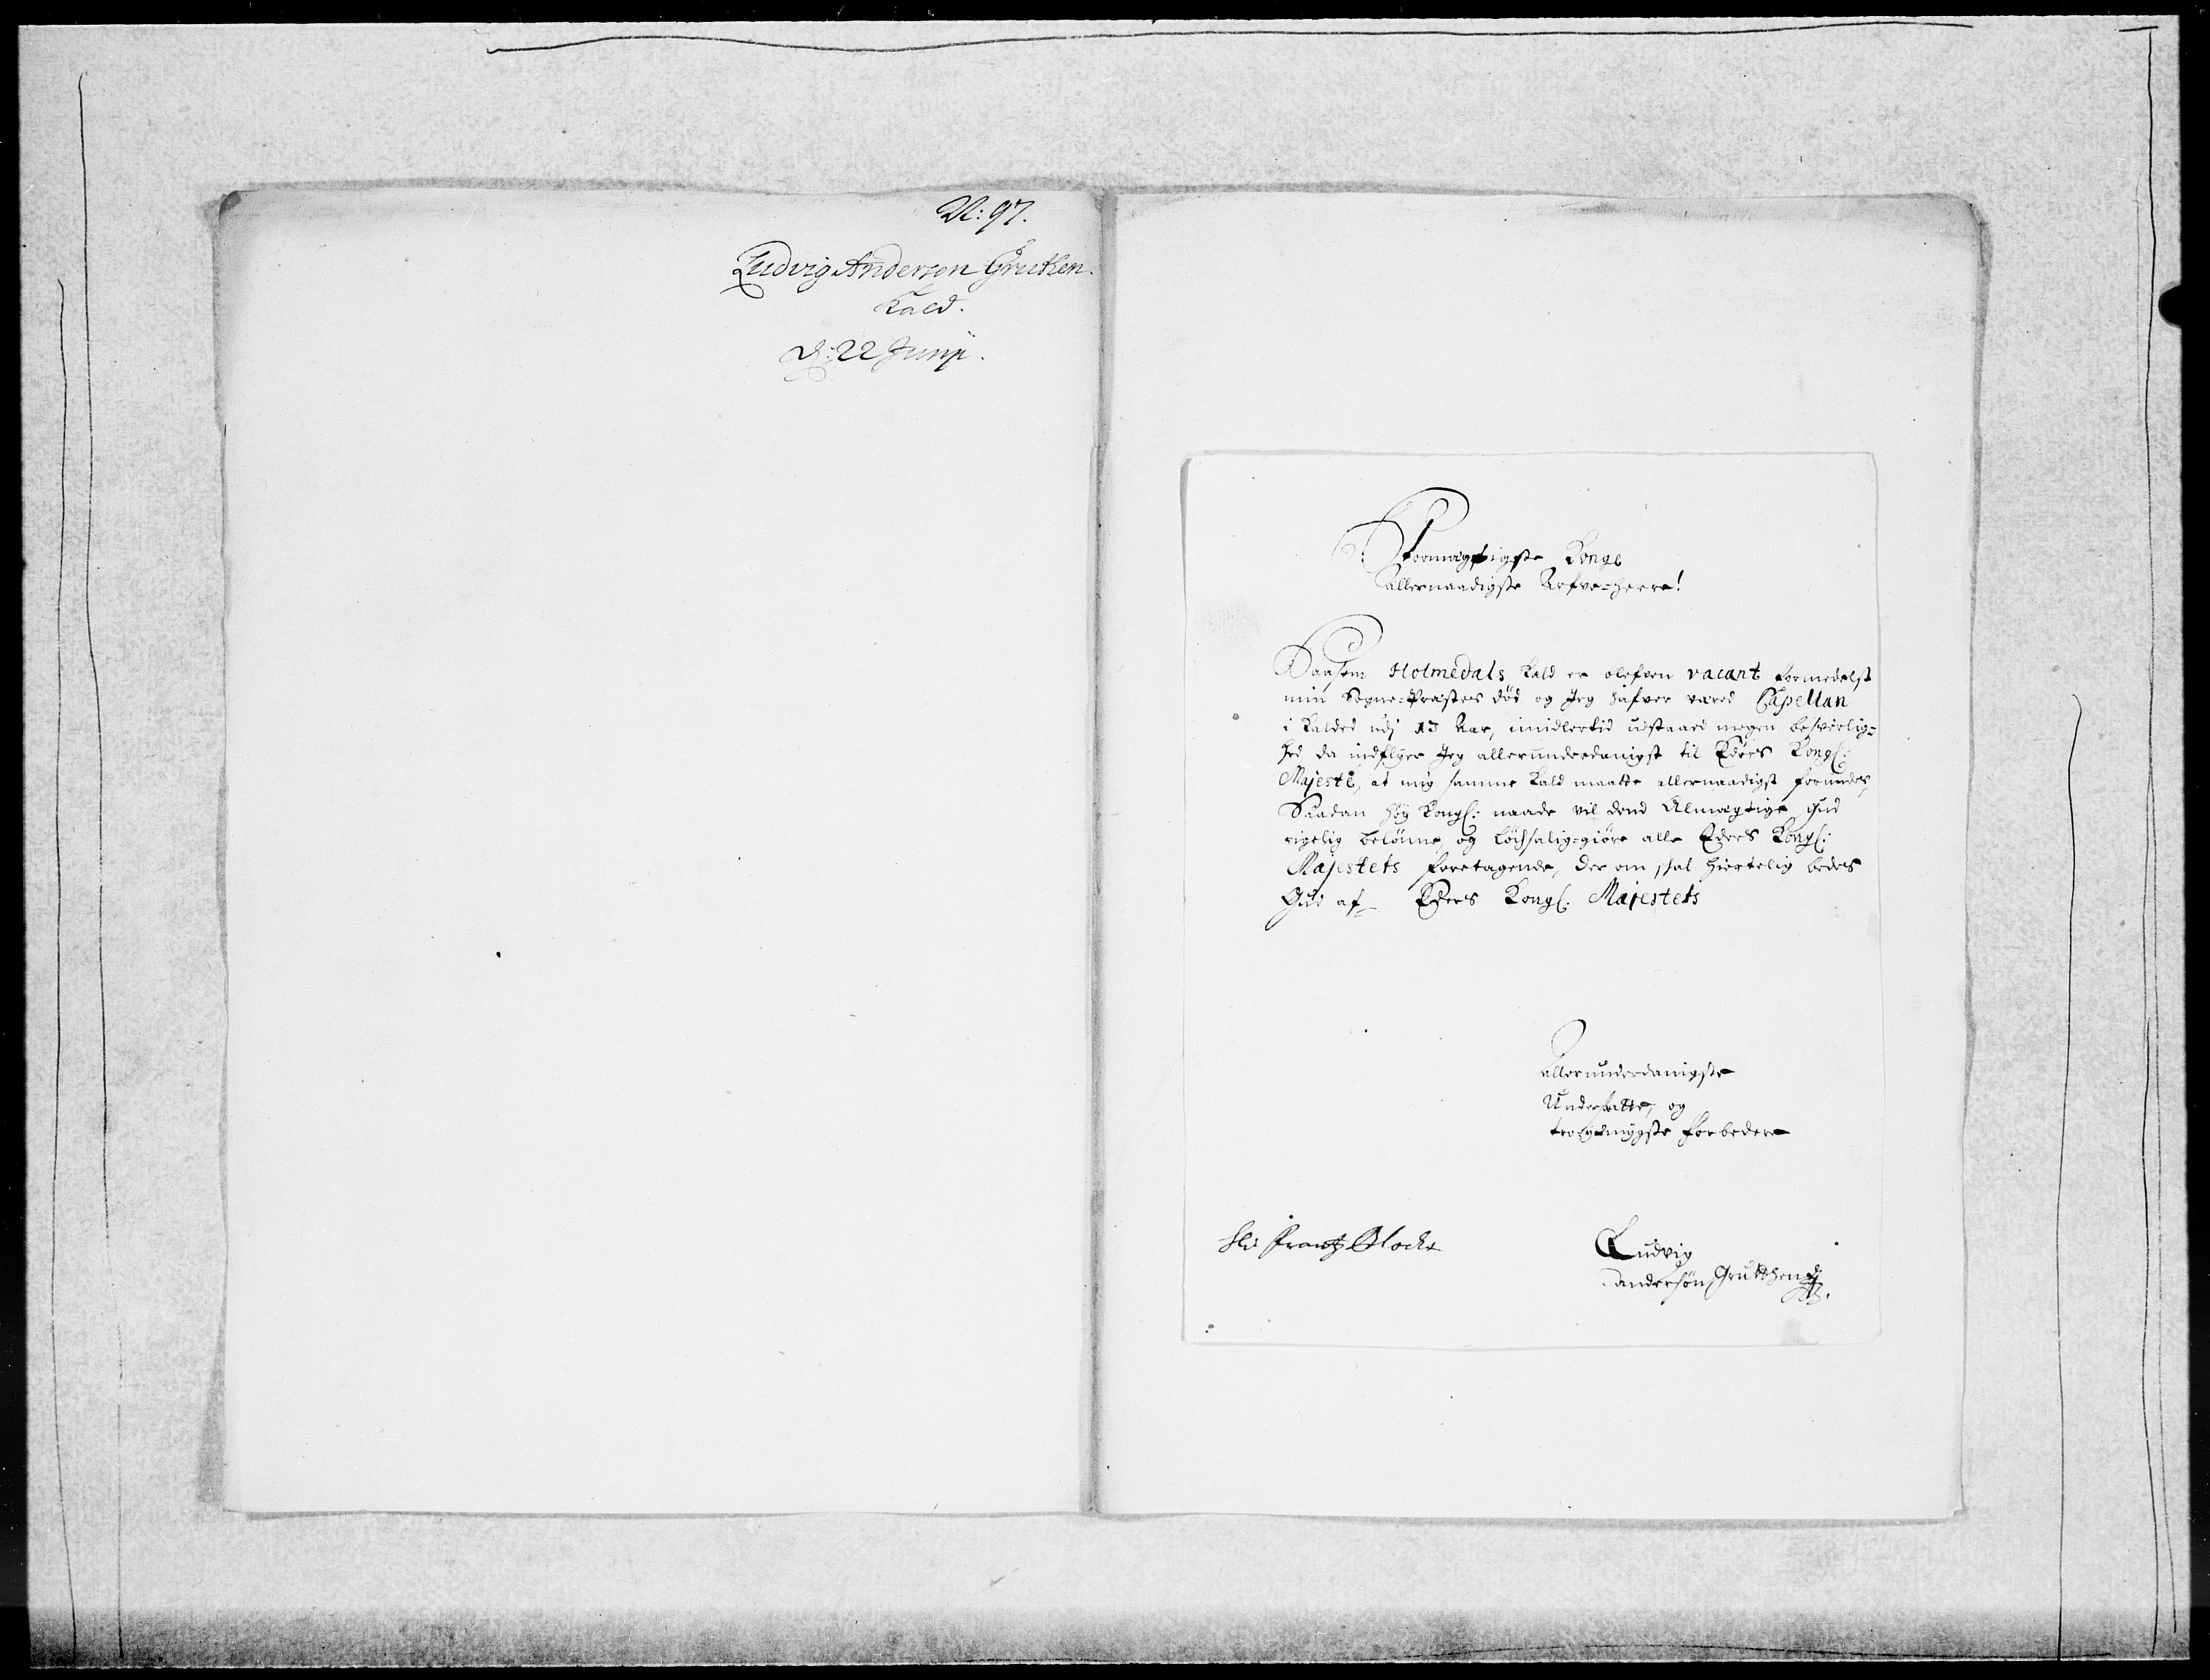 N: 97.
Ludvig Anderson Gruthen.
Kald.
d: 22 Junij.
Stormægtigste Konge
Allernaadigste Arfve-Herre!
Saasom Holmedals kald er blefven vacant formedelst
min Sogne-Præstes død, og Jeg hafver været Capellan
i Kalded udj 13 Aar, imidlertid udstaaed megen besværlig-
hed, da indflyer Jeg allerunderdanigst til Eders Kongl:
Majestæ, at mig samme kald maatte allernaadigst forundes,
Saadan høy Kongl: naade vil dend Almægtige Gud
rigelig belønne, og løchsalig-giøre alle Eders Kongl:
Majestets foretagende, der om skal hiertelig bedes
Gud af Eders Kongl: Majestets
Allerunderdanigste
Undersatte, og
troeydmygste forbedere
Frantz Blocke
Ludvig
Andersøn Grutthen